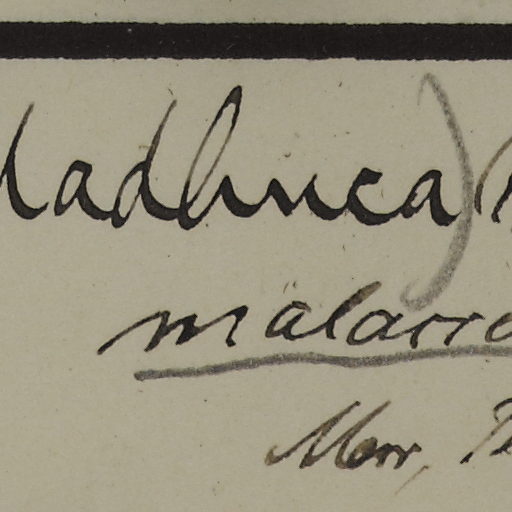 Madhuca) (
malacc
Merr,